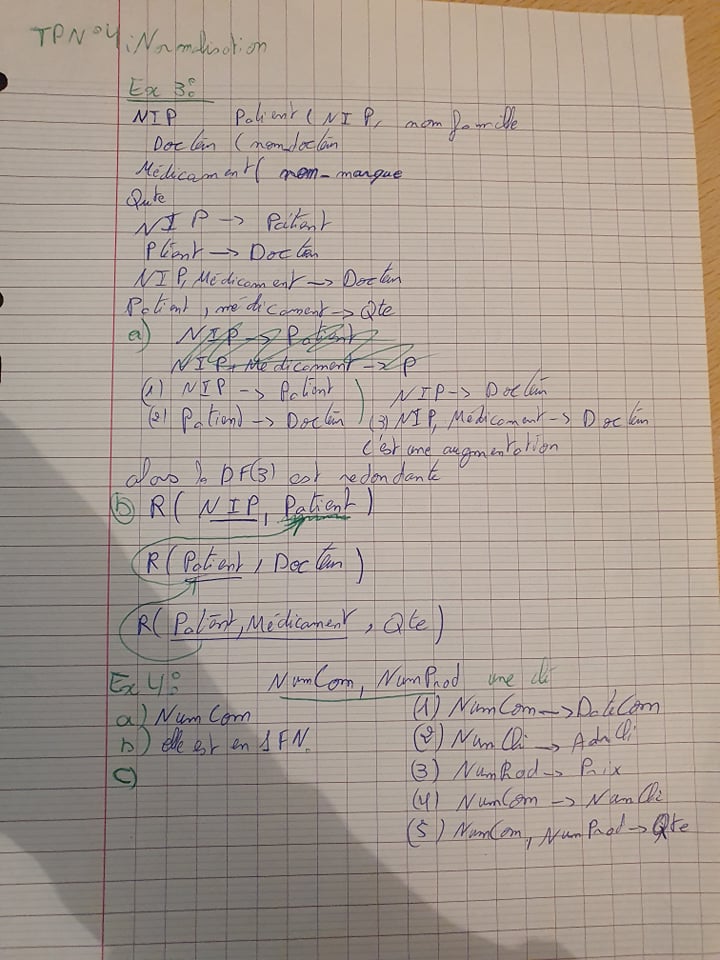 TPN°4: Normalisation
Ex 3:
NIP Patient ( NIP, nom famille
Docteur ( nomdocteur
Médicament( nom-marque
Qute
NIP -> Patient
Ptient -> Docteur
NIP, Médicament -> Docteur
Patient, médicament -> Qte
a) NIP -> Patient
NIP, Médicament -> P
(1) NIP -> Patient ) NIP -> Docteur
(2) Patient -> Docteur (3) NIP, Médicament -> Docteur
c'est une augmentation
alors la DF(3) est redondante
b) R( NIP, Patient )
R( Patient, Docteur )
R( Patient, Médicament, Qte )
Ex 4: NumCom, NumProd une clé
a) NumCom
b) elle est en 1FN.
c)
(1) NumCom -> DateCom
(2) NumCli -> AdrCli
(3) NumProd -> Prix
(4) NumCom -> NumCli
(5) NumCom, NumProd -> Qte